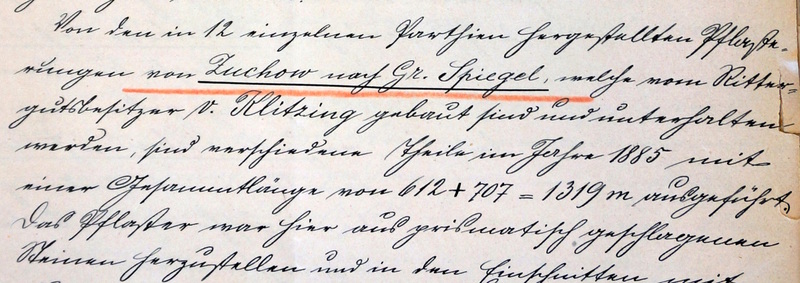 Von den in 12 einzelnen Parthien hergestellten Pflaste-
rungen von Zuchow nach Gr. Spiegel, welche vom Ritter-
gutsbesitzer v. Klitzing gebaut sind und unterhalten
werden, sind verschiedene Theile im Jahre 1885 mit
einer Gesammtlänge von 612 + 707 = 1319 m ausgeführt.
Das Pflaster war hier aus prismatisch geschlagenen
Steinen herzustellen und in den Einschnitten mit